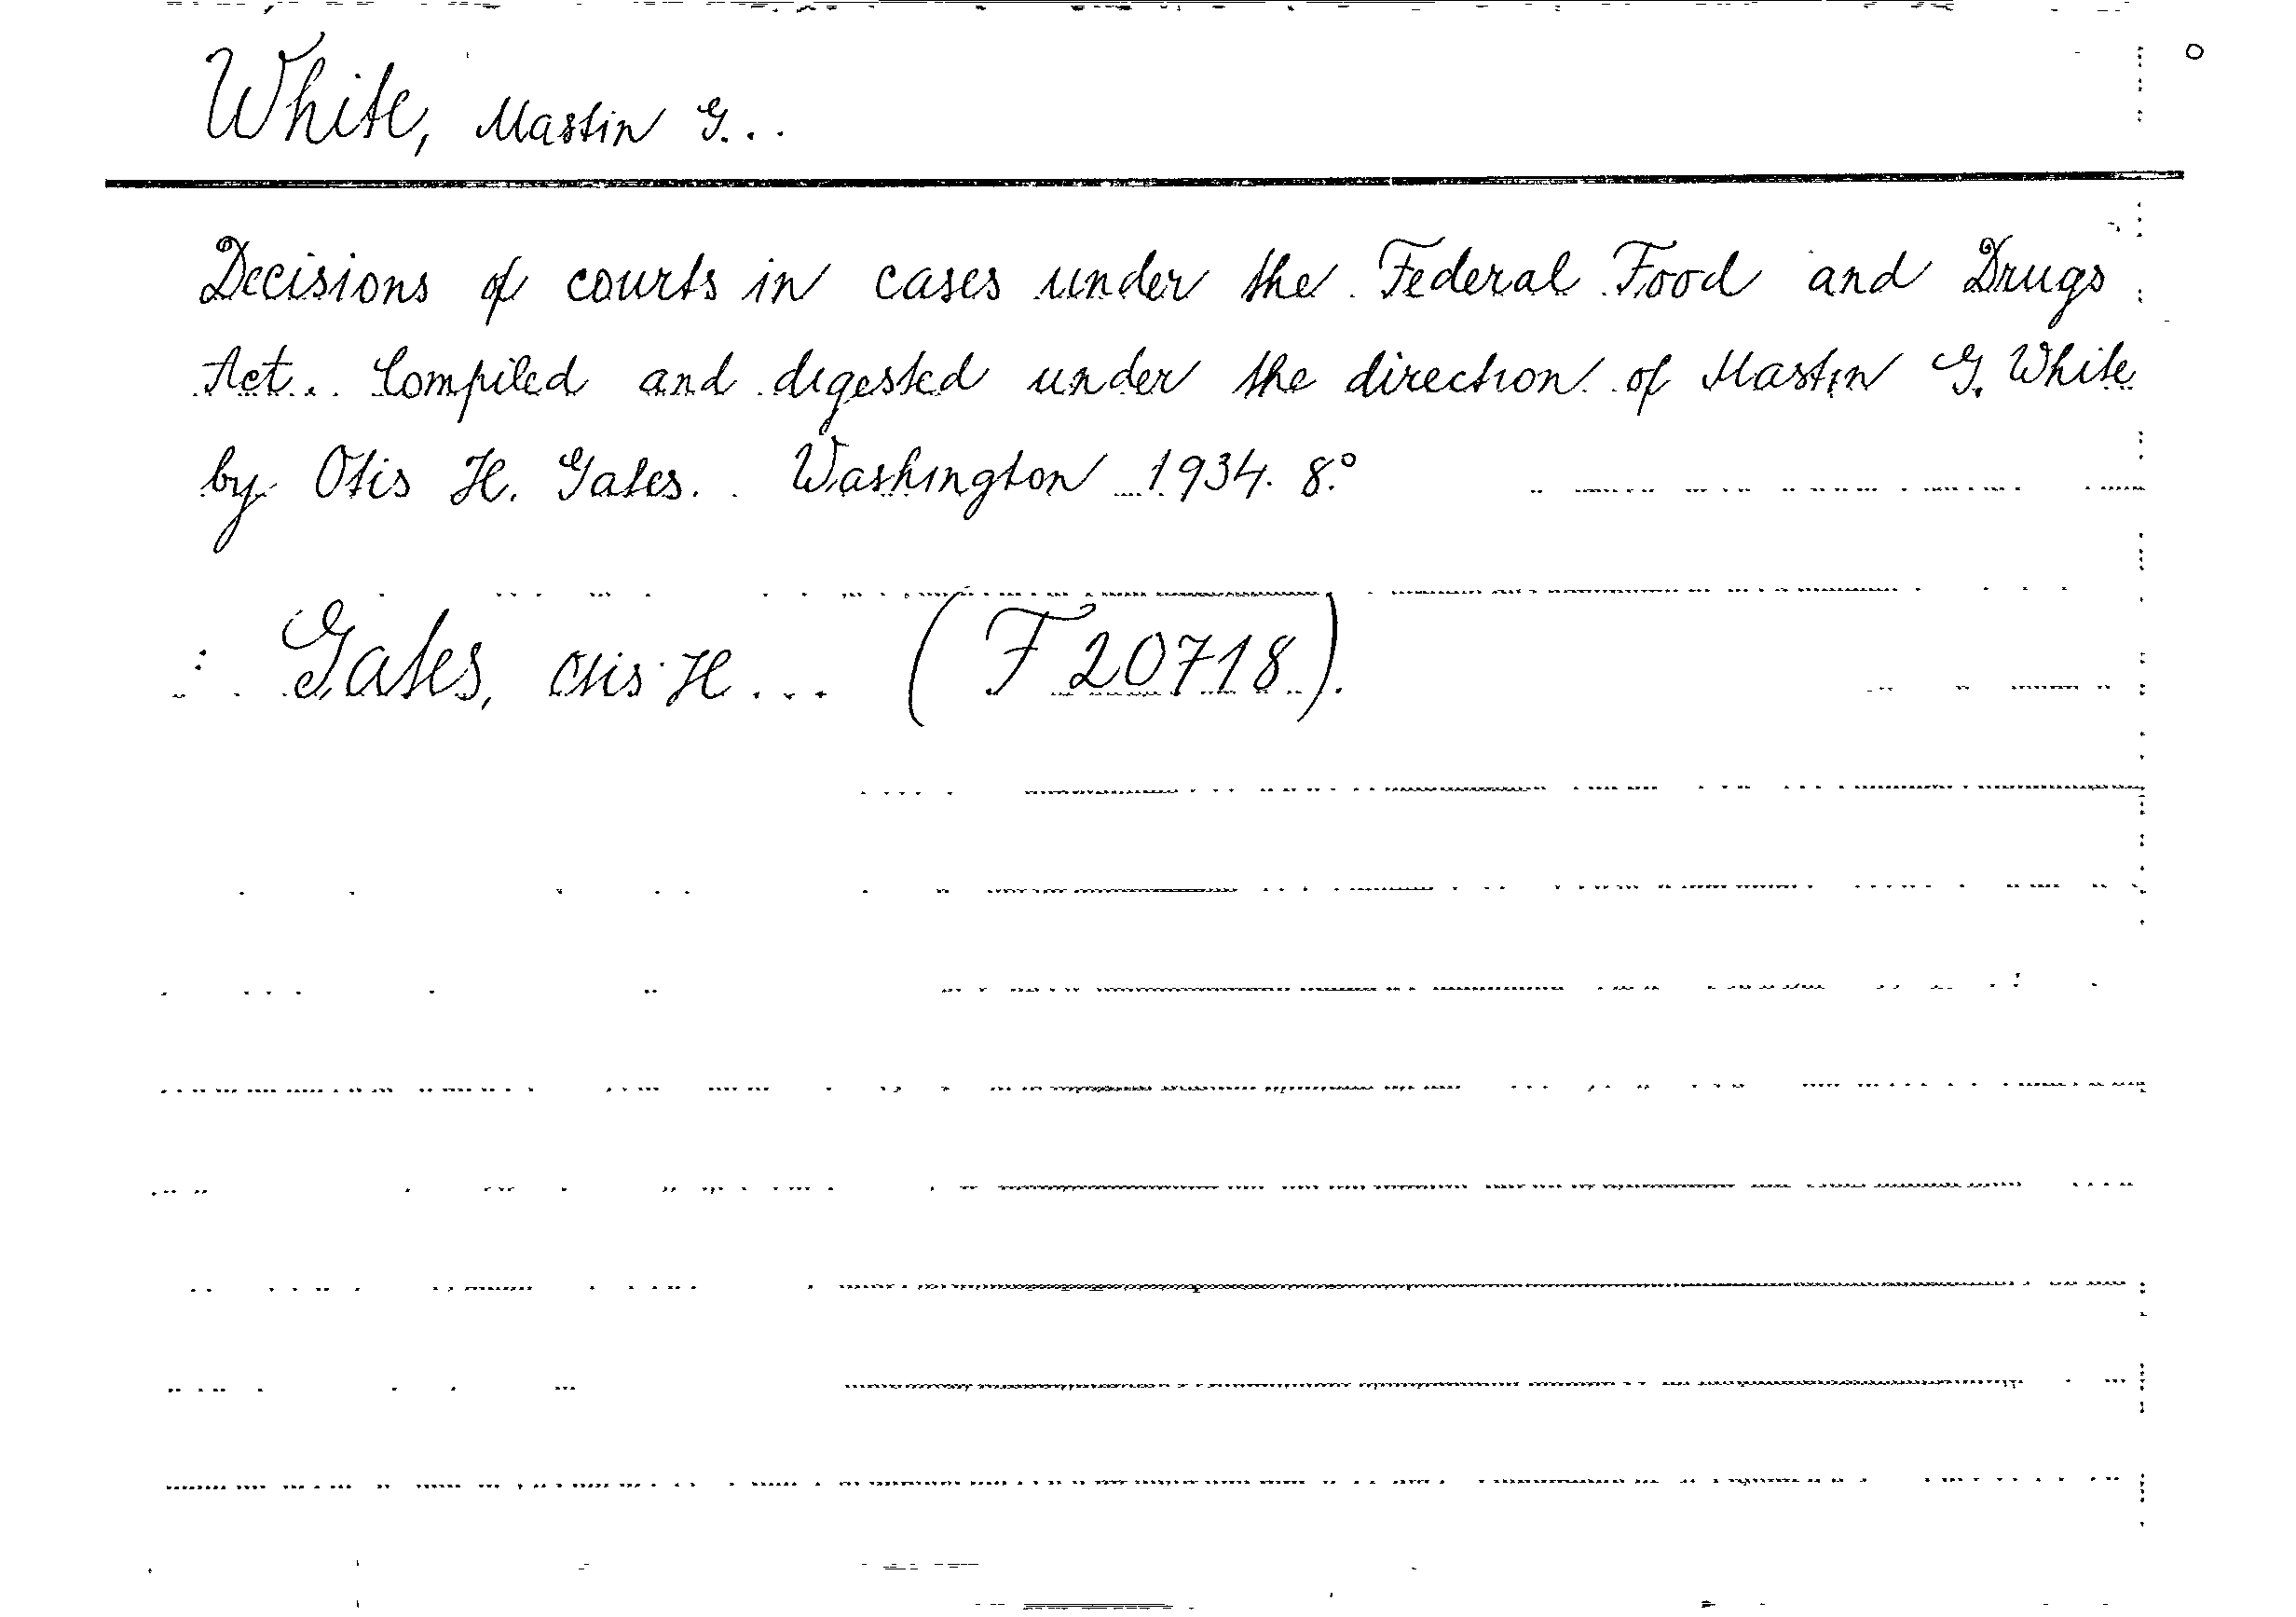 White, Mastin G...
Decisions of courts in cases under the Federal Food and Drugs
Act.. Compiled and digested under the direction of Mastin G. White
by Otis H. Gates.. Washington 1934. 8.°
: Gates, Otis H... (F 20718).